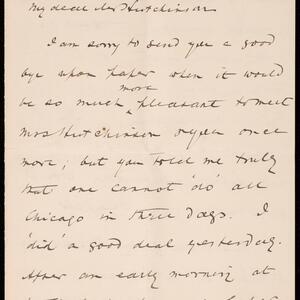 My dear Mr Hutchinson
I am sorry to send you a good
bye upon paper when it would
be so much more pleasant to meet
Mrs Hutchinson & you once
more; but you told me truly
that one cannot 'do' all
Chicago in three days. I
'did' a good deal yesterday.
After an early morning at